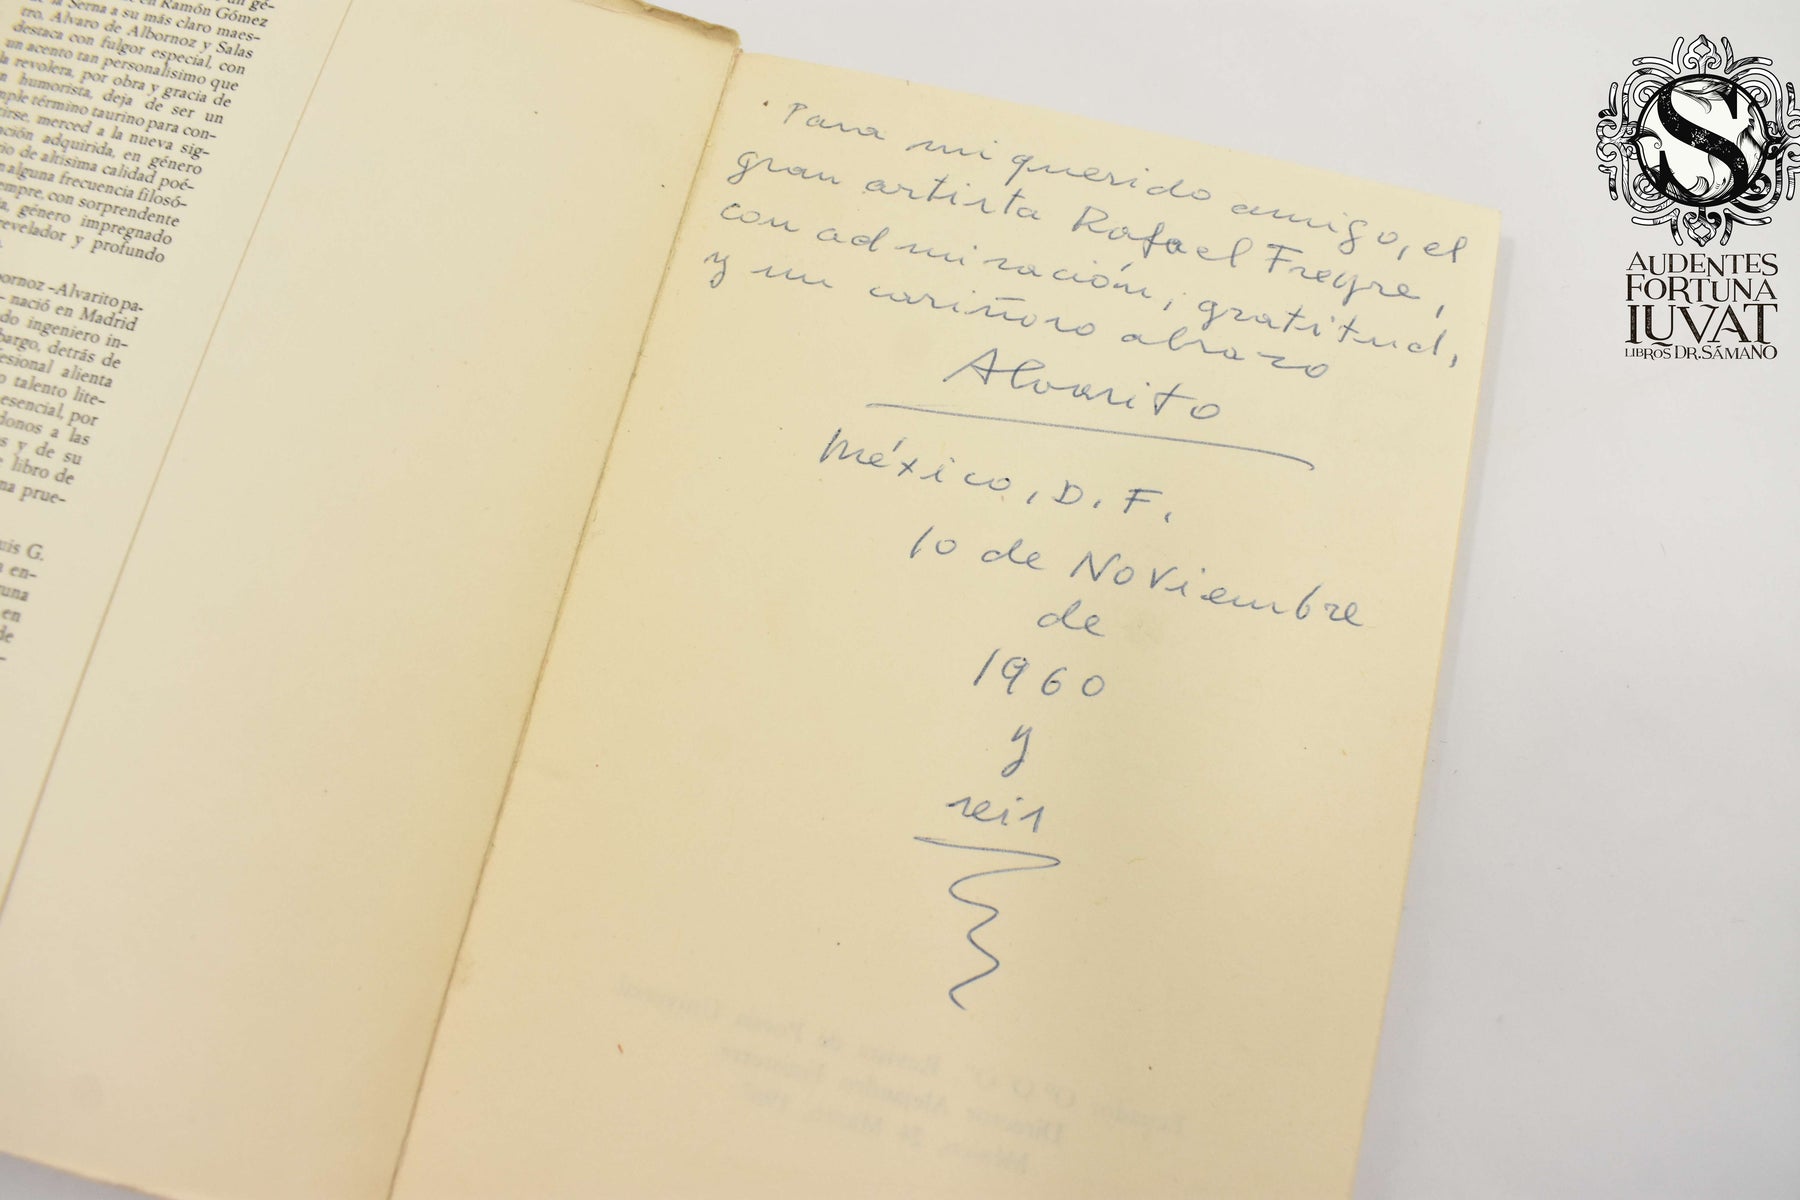 un gé-
en Ramón Gómez
de la Serna a su más claro maes-
tro. Alvaro de Albornoz y Salas
destaca con fulgor especial, con
un acento tan personalísimo que
la revolera, por obra y gracia de
humorista, deja de ser un
mple término taurino para con-
tirse, merced a la nueva sig-
ación adquirida, en género
io de altísima calidad poé-
n alguna frecuencia filosó-
empre, con sorprendente
a, género impregnado
revelador y profundo
bornoz -Alvarito pa-
- nació en Madrid
do ingeniero in-
bargo, detrás de
esional alienta
o talento lite-
esencial, por
donos a las
s y de su
e libro de
na prue-
uis G.
a en-
runa
en
de
Para mi querido amigo, el
gran artista Rafael Freyre,
con admiración, gratitud,
y un cariñoso abrazo
Alvarito
México, D. F.
10 de Noviembre
de
1960
y
seis
S
AUDENTES
FORTUNA
IUVAT
LIBROS DR. SÁMANO